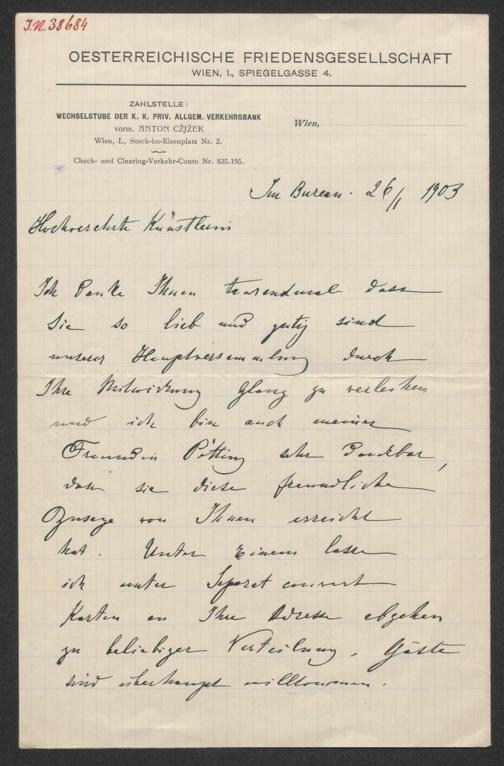 I.N. 38684
OESTERREICHISCHE FRIEDENSGESELLSCHAFT
WIEN, I., SPIEGELGASSE 4.
ZAHLSTELLE:
WECHSELSTUBE DER K. K. PRIV. ALLGEM. VERKEHRSBANK
vorm. ANTON CŽJŽEK
Wien, I., Stock-im-Eisenplatz Nr. 2.
Check- und Clearing-Verkehr-Conto Nr. 825.195.
Wien,
Im Bureau. 26/1 1903
Hochverehrte Künstlerin
Ich danke Ihnen tausendmal dass
Sie so lieb und gütig sind
unserer Hauptversammlung durch
Ihre Mitwirkung Glanz zu verleihen
und ich bin auch meiner
Freundin Pötting sehr dankbar,
dass sie diese freundliche
Zusage von Ihnen erreicht
hat. Unter Einem lasse
ich unter Separat couvert
Karten an Ihre Adresse abgehen
zu beliebiger Verteilung. Gäste
sind überhaupt willkommen.